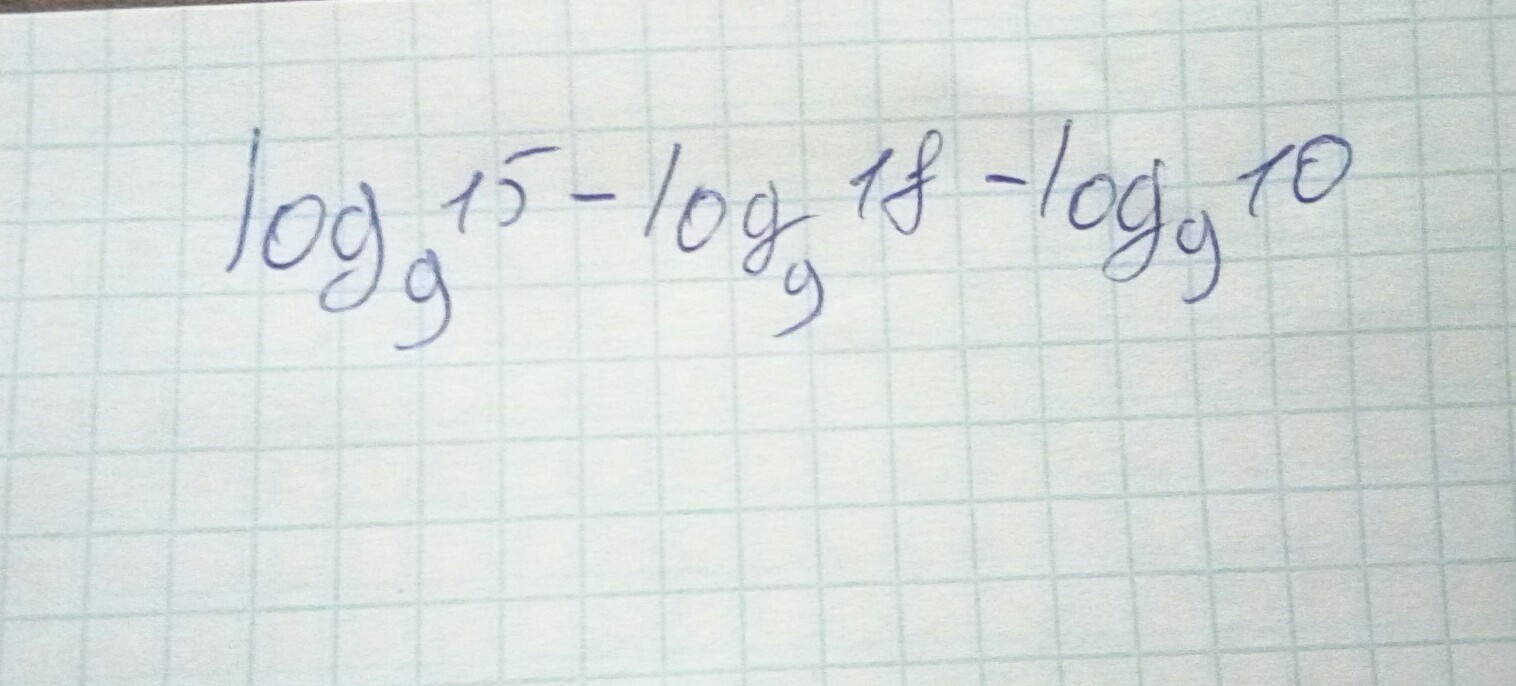 log₉ 15 - log₉ 18 - log₉ 10